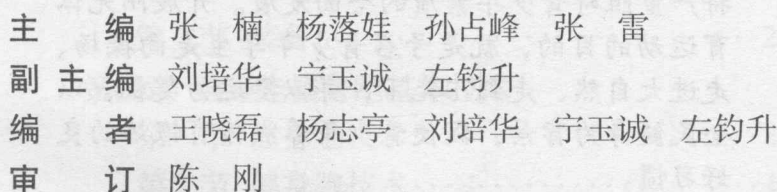 主 编 张 楠 杨落娃 孙占峰 张 雷
副 主 编 刘培华 宁玉诚 左钧升
编 者 王晓磊 杨志亭 刘培华 宁玉诚 左钧升
审 订 陈 刚